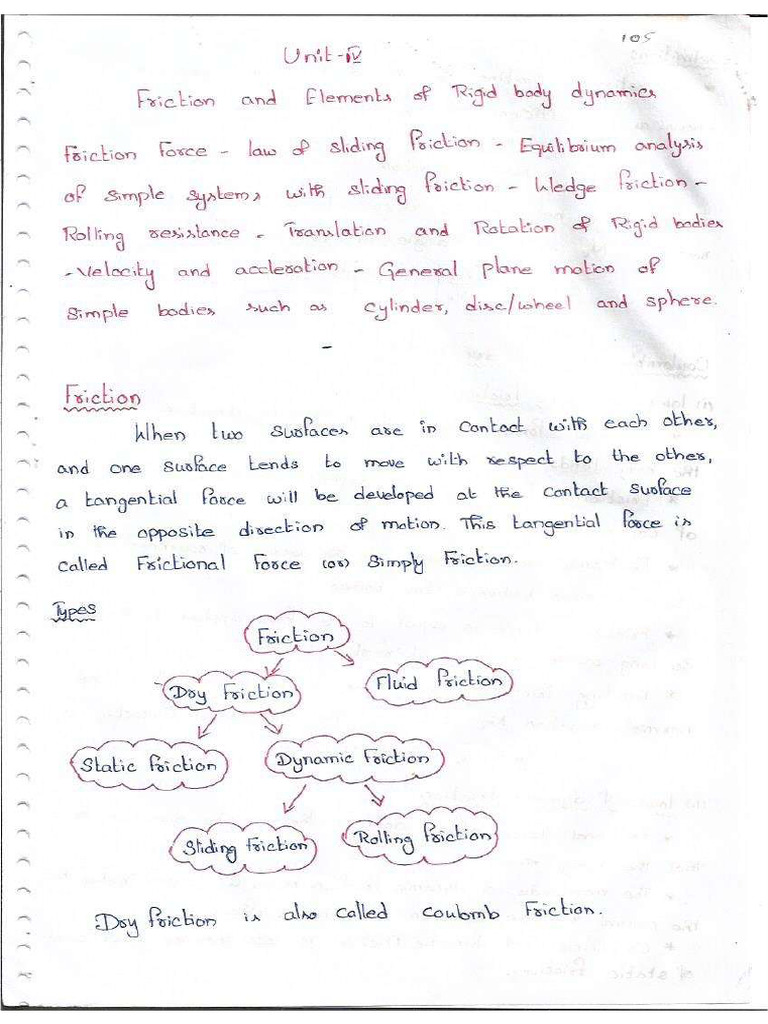 105
Unit-IV
Friction and Elements of Rigid body dynamics
Friction Force - law of sliding friction - Equilibrium analysis
of simple systems with sliding friction - Wedge friction -
Rolling resistance - Translation and Rotation of Rigid bodies
- Velocity and accleration - General plane motion of
simple bodies such as cylinder, disc/wheel and sphere.
-
Friction
When two surfaces are in contact with each other,
and one surface tends to move with respect to the other,
a tangential force will be developed at the contact surface
in the opposite direction of motion. This tangential force is
called Frictional Force (or) Simply Friction.
Types
Friction
Dry Friction
Fluid Friction
Static Friction
Dynamic Friction
Sliding Friction
Rolling Friction
Dry friction is also called coulomb Friction.